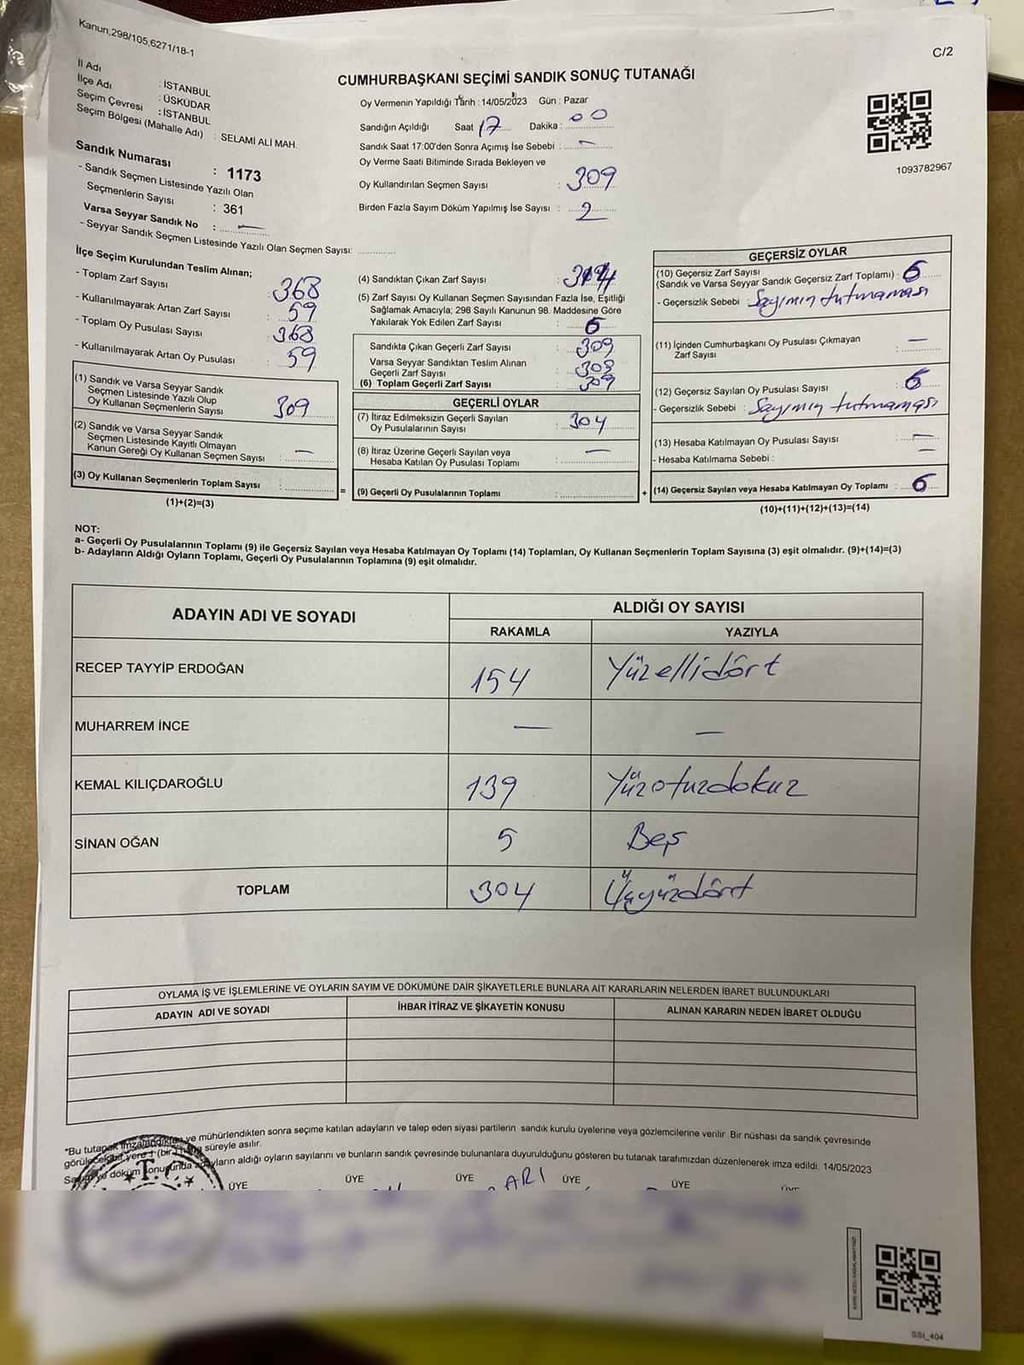 Kanun,298/105,6271/18-1
C/2
İl Adı : İSTANBUL
İlçe Adı : ÜSKÜDAR
Seçim Çevresi : İSTANBUL
Seçim Bölgesi (Mahalle Adı) : SELAMİ ALİ MAH.
Sandık Numarası : 1173
- Sandık Seçmen Listesinde Yazılı Olan
Seçmenlerin Sayısı : 361
Varsa Seyyar Sandık No : —
- Seyyar Sandık Seçmen Listesinde Yazılı Olan Seçmen Sayısı:
CUMHURBAŞKANI SEÇİMİ SANDIK SONUÇ TUTANAĞI
Oy Vermenin Yapıldığı Tarih : 14/05/2023 Gün : Pazar
Sandığın Açıldığı Saat 17 Dakika : 00
Sandık Saat 17:00'den Sonra Açımış İse Sebebi : —
Oy Verme Saati Bitiminde Sırada Bekleyen ve
Oy Kullandırılan Seçmen Sayısı : 309
Birden Fazla Sayım Döküm Yapılmış İse Sayısı : 2
1093782967
İlçe Seçim Kurulundan Teslim Alınan;
- Toplam Zarf Sayısı : 368
- Kullanılmayarak Artan Zarf Sayısı : 59
- Toplam Oy Pusulası Sayısı : 368
- Kullanılmayarak Artan Oy Pusulası : 59
(1) Sandık ve Varsa Seyyar Sandık
Seçmen Listesinde Yazılı Olup
Oy Kullanan Seçmenlerin Sayısı : 309
(2) Sandık ve Varsa Seyyar Sandık
Seçmen Listesinde Kayıtlı Olmayan
Kanun Gereği Oy Kullanan Seçmen Sayısı : —
(3) Oy Kullanan Seçmenlerin Toplam Sayısı :
(1)+(2)=(3)
(4) Sandıktan Çıkan Zarf Sayısı :
(5) Zarf Sayısı Oy Kullanan Seçmen Sayısından Fazla İse, Eşitliği
Sağlamak Amacıyla; 298 Sayılı Kanunun 98. Maddesine Göre
Yakılarak Yok Edilen Zarf Sayısı : 6
Sandıkta Çıkan Geçerli Zarf Sayısı : 309
Varsa Seyyar Sandıktan Teslim Alınan
Geçerli Zarf Sayısı :
(6) Toplam Geçerli Zarf Sayısı : 309
=
GEÇERLİ OYLAR
(7) İtiraz Edilmeksizin Geçerli Sayılan
Oy Pusulalarının Sayısı : 304
(8) İtiraz Üzerine Geçerli Sayılan veya
Hesaba Katılan Oy Pusulası Toplamı : —
(9) Geçerli Oy Pusulalarının Toplamı :
+
GEÇERSİZ OYLAR
(10) Geçersiz Zarf Sayısı
(Sandık ve Varsa Seyyar Sandık Geçersiz Zarf Toplamı) : 6
- Geçersizlik Sebebi : Sayımın tutmaması
(11) İçinden Cumhurbaşkanı Oy Pusulası Çıkmayan
Zarf Sayısı : —
(12) Geçersiz Sayılan Oy Pusulası Sayısı : 6
- Geçersizlik Sebebi : Sayımın tutmaması
(13) Hesaba Katılmayan Oy Pusulası Sayısı : —
- Hesaba Katılmama Sebebi : —
(14) Geçersiz Sayılan veya Hesaba Katılmayan Oy Toplamı : 6
(10)+(11)+(12)+(13)=(14)
NOT:
a- Geçerli Oy Pusulalarının Toplamı (9) ile Geçersiz Sayılan veya Hesaba Katılmayan Oy Toplamı (14) Toplamları, Oy Kullanan Seçmenlerin Toplam Sayısına (3) eşit olmalıdır. (9)+(14)=(3)
b- Adayların Aldığı Oyların Toplamı, Geçerli Oy Pusulalarının Toplamına (9) eşit olmalıdır.
ADAYIN ADI VE SOYADI
ALDIĞI OY SAYISI
RAKAMLA YAZIYLA
RECEP TAYYİP ERDOĞAN 154 Yüzellidört
MUHARREM İNCE — —
KEMAL KILIÇDAROĞLU 139 Yüzotuzdokuz
SİNAN OĞAN 5 Beş
TOPLAM 304 Üçyüzdört
OYLAMA İŞ VE İŞLEMLERİNE VE OYLARIN SAYIM VE DÖKÜMÜNE DAİR ŞİKAYETLERLE BUNLARA AİT KARARLARIN NELERDEN İBARET BULUNDUKLARI
ADAYIN ADI VE SOYADI İHBAR İTİRAZ VE ŞİKAYETİN KONUSU ALINAN KARARIN NEDEN İBARET OLDUĞU
*Bu tutanak imzalandıktan ve mühürlendikten sonra seçime katılan adayların ve talep eden siyasi partilerin sandık kurulu üyelerine veya gözlemcilerine verilir. Bir nüshası da sandık çevresinde
görülecek bir yere 1 (bir) hafta süreyle asılır.
Sayım ve döküm sonunda adayların aldığı oyların sayılarını ve bunların sandık çevresinde bulunanlara duyurulduğunu gösteren bu tutanak tarafımızdan düzenlenerek imza edildi. 14/05/2023
T.C.
ÜYE ÜYE ÜYE ÜYE ÜYE
ARI
SSI_404